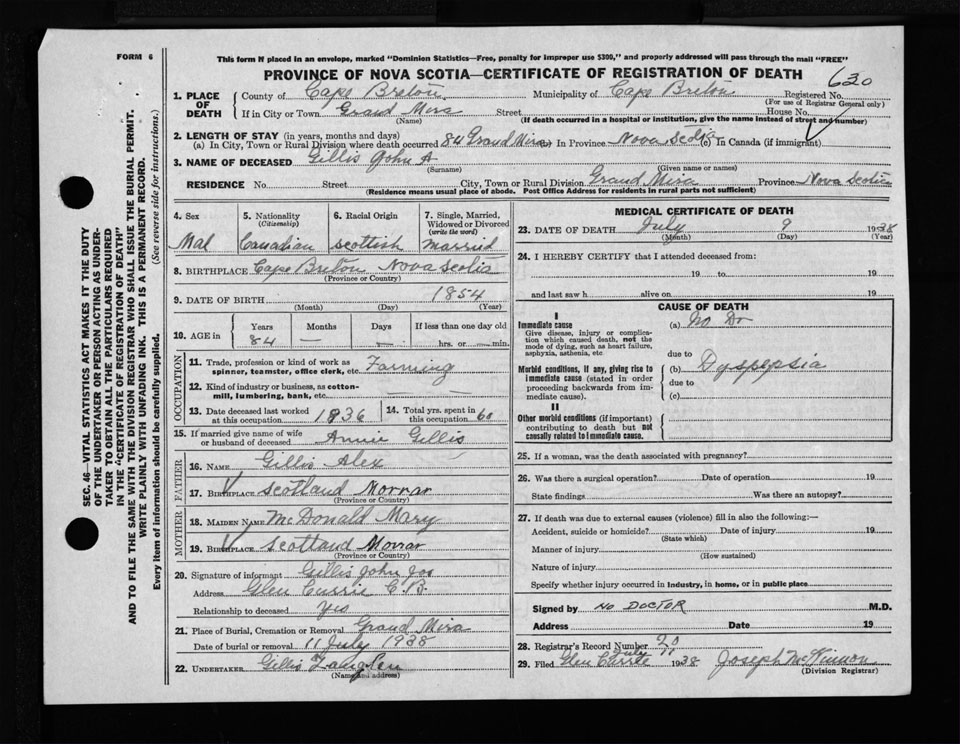 FORM 6
This form if placed in an envelope, marked "Dominion Statistics—Free, penalty for improper use $300," and properly addressed will pass through the mail "FREE"
PROVINCE OF NOVA SCOTIA—CERTIFICATE OF REGISTRATION OF DEATH
630
1. PLACE OF DEATH
County of Cape Breton Municipality of Cape Breton Registered No.
(For use of Registrar General only)
If in City or Town Grand Mira Street House No.
(Name) (If death occurred in a hospital or institution, give the name instead of street and number)
2. LENGTH OF STAY (in years, months and days)
(a) In City, Town or Rural Division where death occurred 84 Grand Mira (b) In Province Nova Scotia (c) In Canada (if immigrant)
3. NAME OF DECEASED Gillis John A
(Surname) (Given name or names)
RESIDENCE No. Street City, Town or Rural Division Grand Mira Province Nova Scotia
(Residence means usual place of abode. Post Office Address for residents in rural parts not sufficient)
4. Sex Mal
5. Nationality (Citizenship) Canadian
6. Racial Origin Scottish
7. Single, Married, Widowed or Divorced (write the word) Married
8. BIRTHPLACE Cape Breton Nova Scotia
(Province or Country)
9. DATE OF BIRTH 1854
(Month) (Day) (Year)
10. AGE in Years Months Days If less than one day old
84 — — hrs. or min.
OCCUPATION
11. Trade, profession or kind of work as spinner, teamster, office clerk, etc. Farming
12. Kind of industry or business, as cotton-mill, lumbering, bank, etc. —
13. Date deceased last worked at this occupation 1936
14. Total yrs. spent in this occupation 60
15. If married give name of wife or husband of deceased Annie Gillis
FATHER
16. NAME Gillis Alex
17. BIRTHPLACE Scotland Morrar
(Province or Country)
MOTHER
18. MAIDEN NAME McDonald Mary
19. BIRTHPLACE Scotland Morrar
(Province or Country)
20. Signature of informant Gillis John Jos
Address Glen Currie C.B.
Relationship to deceased Yes
21. Place of Burial, Cremation or Removal Grand Mira
Date of burial or removal 11 July 1938
22. UNDERTAKER Gillis
(Name and address)
MEDICAL CERTIFICATE OF DEATH
23. DATE OF DEATH July 9 1938
(Month) (Day) (Year)
24. I HEREBY CERTIFY that I attended deceased from:
19 to 19
and last saw h alive on 19
CAUSE OF DEATH
I
Immediate cause
Give disease, injury or complication which caused death, not the mode of dying, such as heart failure, asphyxia, asthenia, etc
(a) No Dr
due to
Morbid conditions, if any, giving rise to immediate cause (stated in order proceeding backwards from immediate cause).
(b) Dyspepsia
due to
(c)
II
Other morbid conditions (if important) contributing to death but not causally related to immediate cause.
25. If a woman, was the death associated with pregnancy?
26. Was there a surgical operation? Date of operation 19
State findings Was there an autopsy?
27. If death was due to external causes (violence) fill in also the following:—
Accident, suicide or homicide? Date of injury 19
(State which)
Manner of injury
(How sustained)
Nature of injury
Specify whether injury occurred in industry, in home, or in public place
Signed by NO DOCTOR M.D.
Address Date 19
28. Registrar's Record Number 20
29. Filed Glen Currie July 11 1938 Joseph McKinnon
(Division Registrar)
SEC. 46—VITAL STATISTICS ACT MAKES IT THE DUTY
OF THE UNDERTAKER OR PERSON ACTING AS UNDER-
TAKER TO OBTAIN ALL THE PARTICULARS REQUIRED
IN THE "CERTIFICATE OF REGISTRATION OF DEATH"
AND TO FILE THE SAME WITH THE DIVISION REGISTRAR WHO SHALL ISSUE THE BURIAL PERMIT.
WRITE PLAINLY WITH UNFADING INK. THIS IS A PERMANENT RECORD.
Every item of information should be carefully supplied. (See reverse side for instructions.)